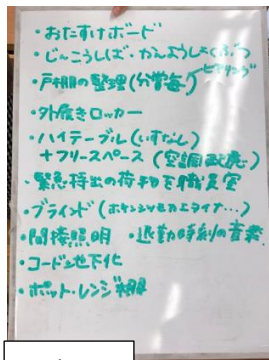 ・おたすけボード
・じんこうしば・かんようしょくぶつ
・戸棚の整理(分掌毎) ヒアリング
・外履きロッカー
・ハイテーブル(いすなし)
+フリースペース(空調配慮)
・緊急持出の荷物を職員室
・ブラインド(ホケンシツもカエタイ…)
・間接照明 ・退勤時刻の音楽
・コード地下化
・ポット・レンジ棚